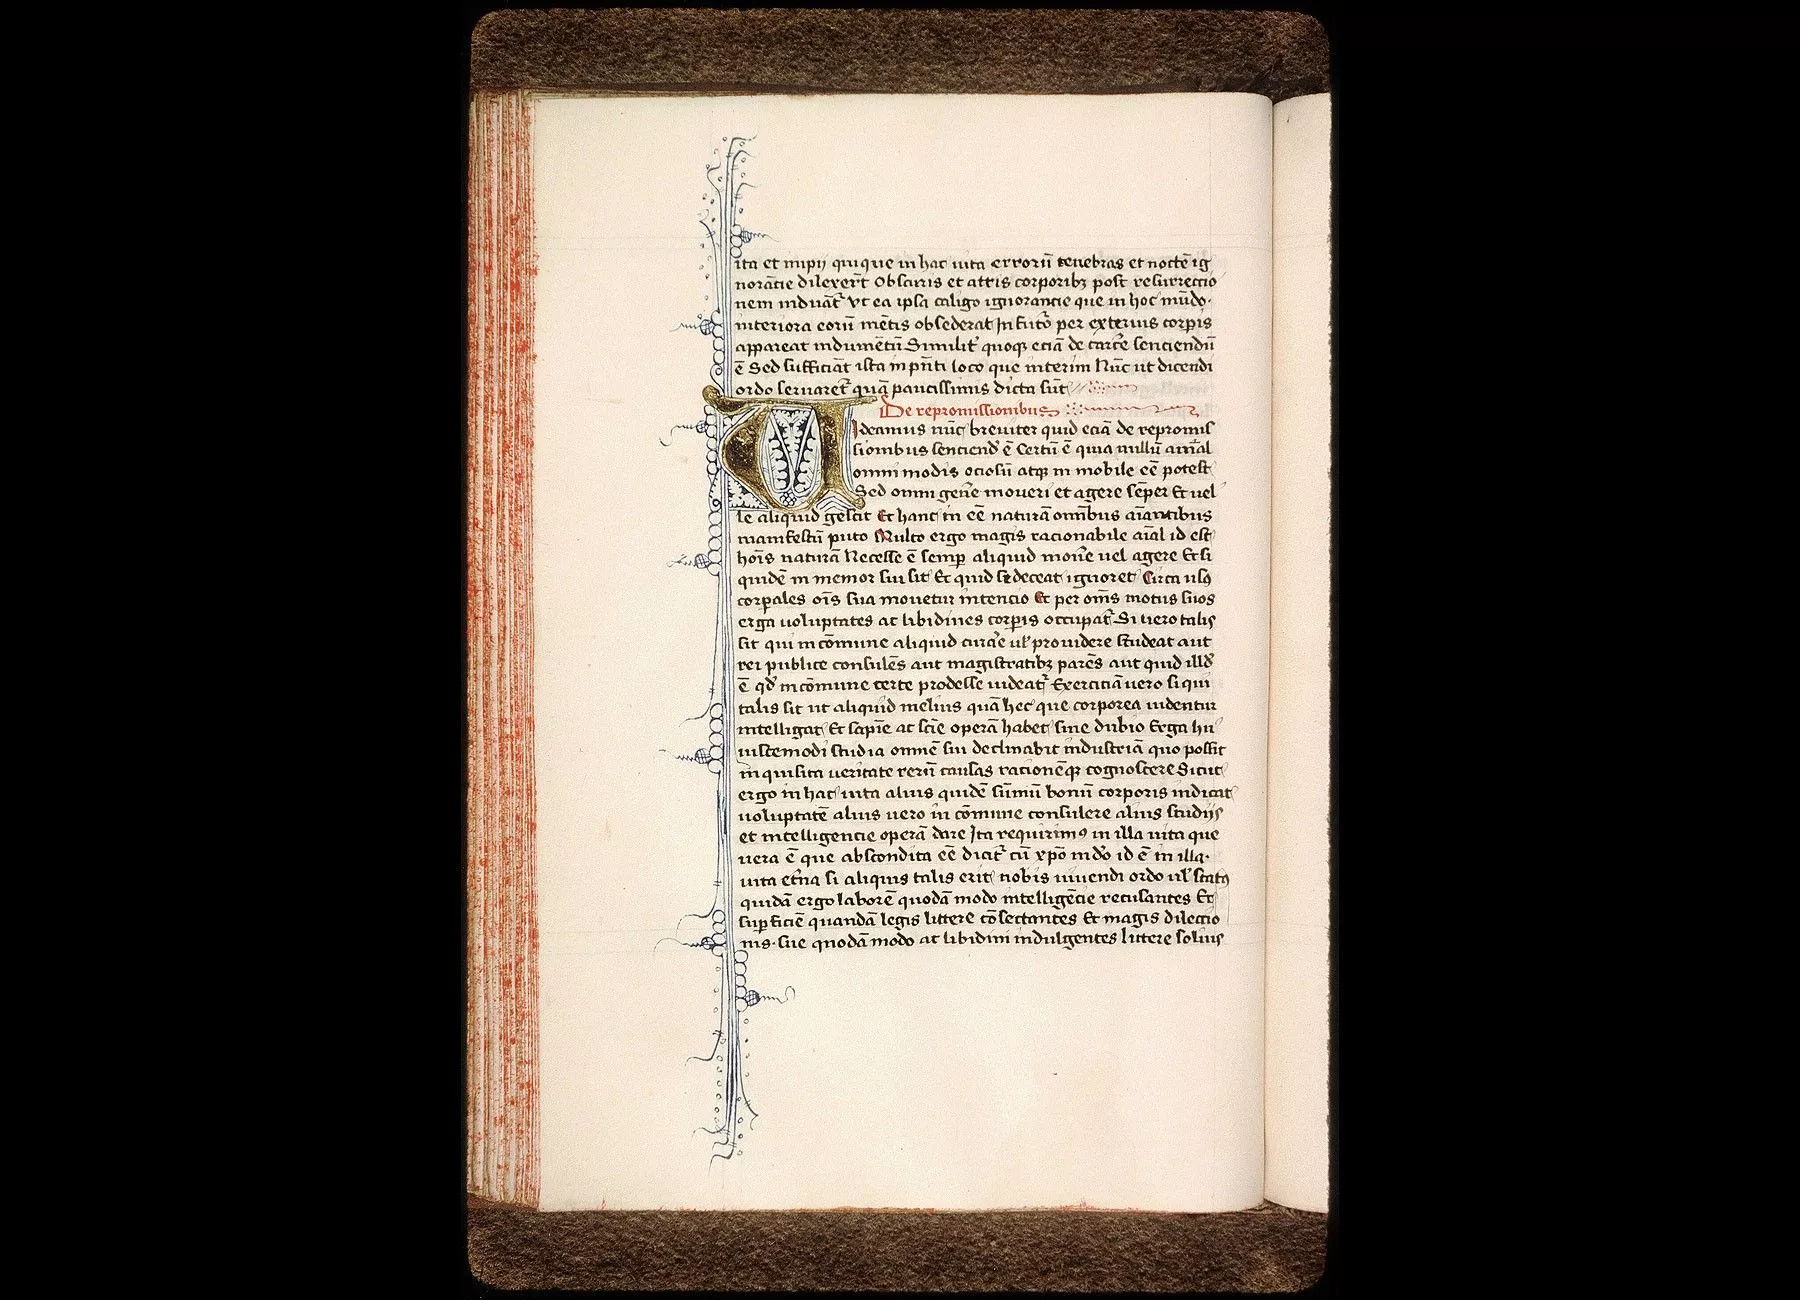 ita et impij quique in hac uita errorū tenebras et noctē ig
norātie dilexerūt Obscuris et attis corporibꝫ post resurrectio
nem induāt᷑ Vt ea ipsa caligo ignorantie que in hoc mūdo·
interiora eorū mētis obsederat In futō per exterius corpis
appareat indumētū Similit᷑ quoqꝫ eciā de carcē senciendū
ē Sed sufficiāt ista in pn̄ti loco que interim Nūc ut dicendi
ordo seruaret᷑ quā paucissimis dicta sūt
De repromissionibus
UIdeamus nūc breuiter quid eciā de repromis
sionibus senciend̄ ē Certū ē quia nullū aīal
omni modis ociosū atqꝫ in mobile eē potest
Sed omni gen̄e moueri et agere sēper Et uel
le aliquid gestit Et hanc in eē naturā omībus aīantibus
manifestū puto Multo ergo magis racionabile aīal id est
hoīs naturā Necesse ē semꝑ aliquid mouē uel agere Et si
quidē in memor sui sit Et quid se deceat ignoret Circa usꝰ
corꝑales oīs sua mouetur intencio Et per oīs motus suos
erga uoluptates ac libidines corꝑis occupat᷑ Si uero talis
sit qui in cōmune aliquid curaē ul̄ prouidere studeat aut
rei publice consulēs aut magistratibꝫ parēs aut quid illd̄
ē qd̄ in cōmune certe prodesse uideat᷑ Exerciciā uero si qui
talis sit ut aliquid melius quā hec que corporea uidentur
intelligat Et sapīe ac scīe operā habet sine dubio Erga hu
iuscemodi studia omnē sui declinabit industriā quo possit
inquisita ueritate rerū causas racionēqꝫ cognoscere Sicut
ergo in hac uita alius quidē sūmū bonū corporis iudicat
uoluptatē alius uero in cōmune consulere alius studijs
et intelligencie operā dare Ita requirimꝰ in illa uita que
uera ē que abscondita eē dicit᷑ cū xp̄o in dō id ē in illa·
uita et̄na si aliquis talis erit nobis uiuendi ordo ul̄ statꝰ
quidā ergo laborē quodā modo intelligēcie recusantes Et
suꝑficiē quandā legis littere cōsectantes Et magis dilectio
nis· sue quodā modo ac libidini indulgentes littere solius